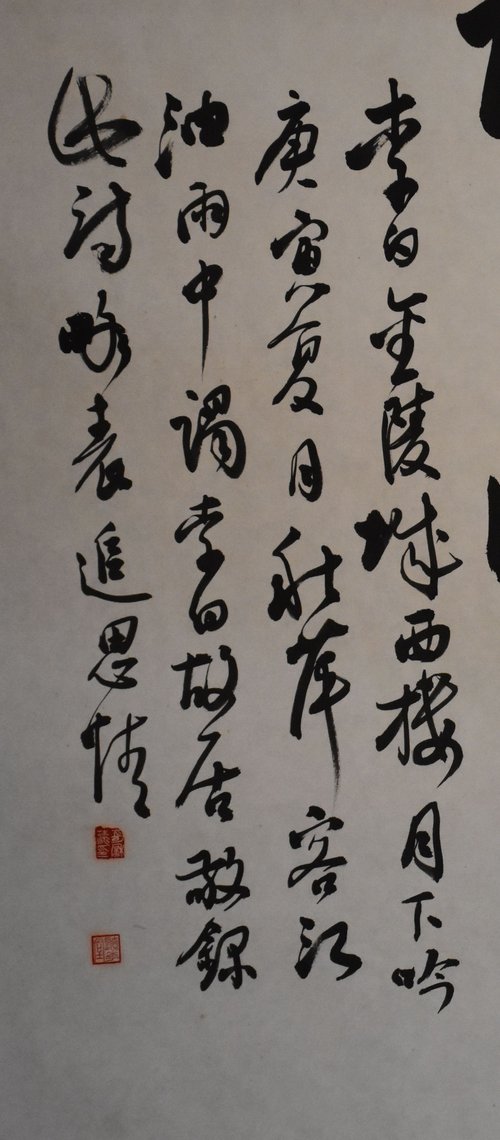 李白金陵城西樓月下吟
庚寅夏月客江
油雨中謁李白故居敬錄
此詩略表追思情